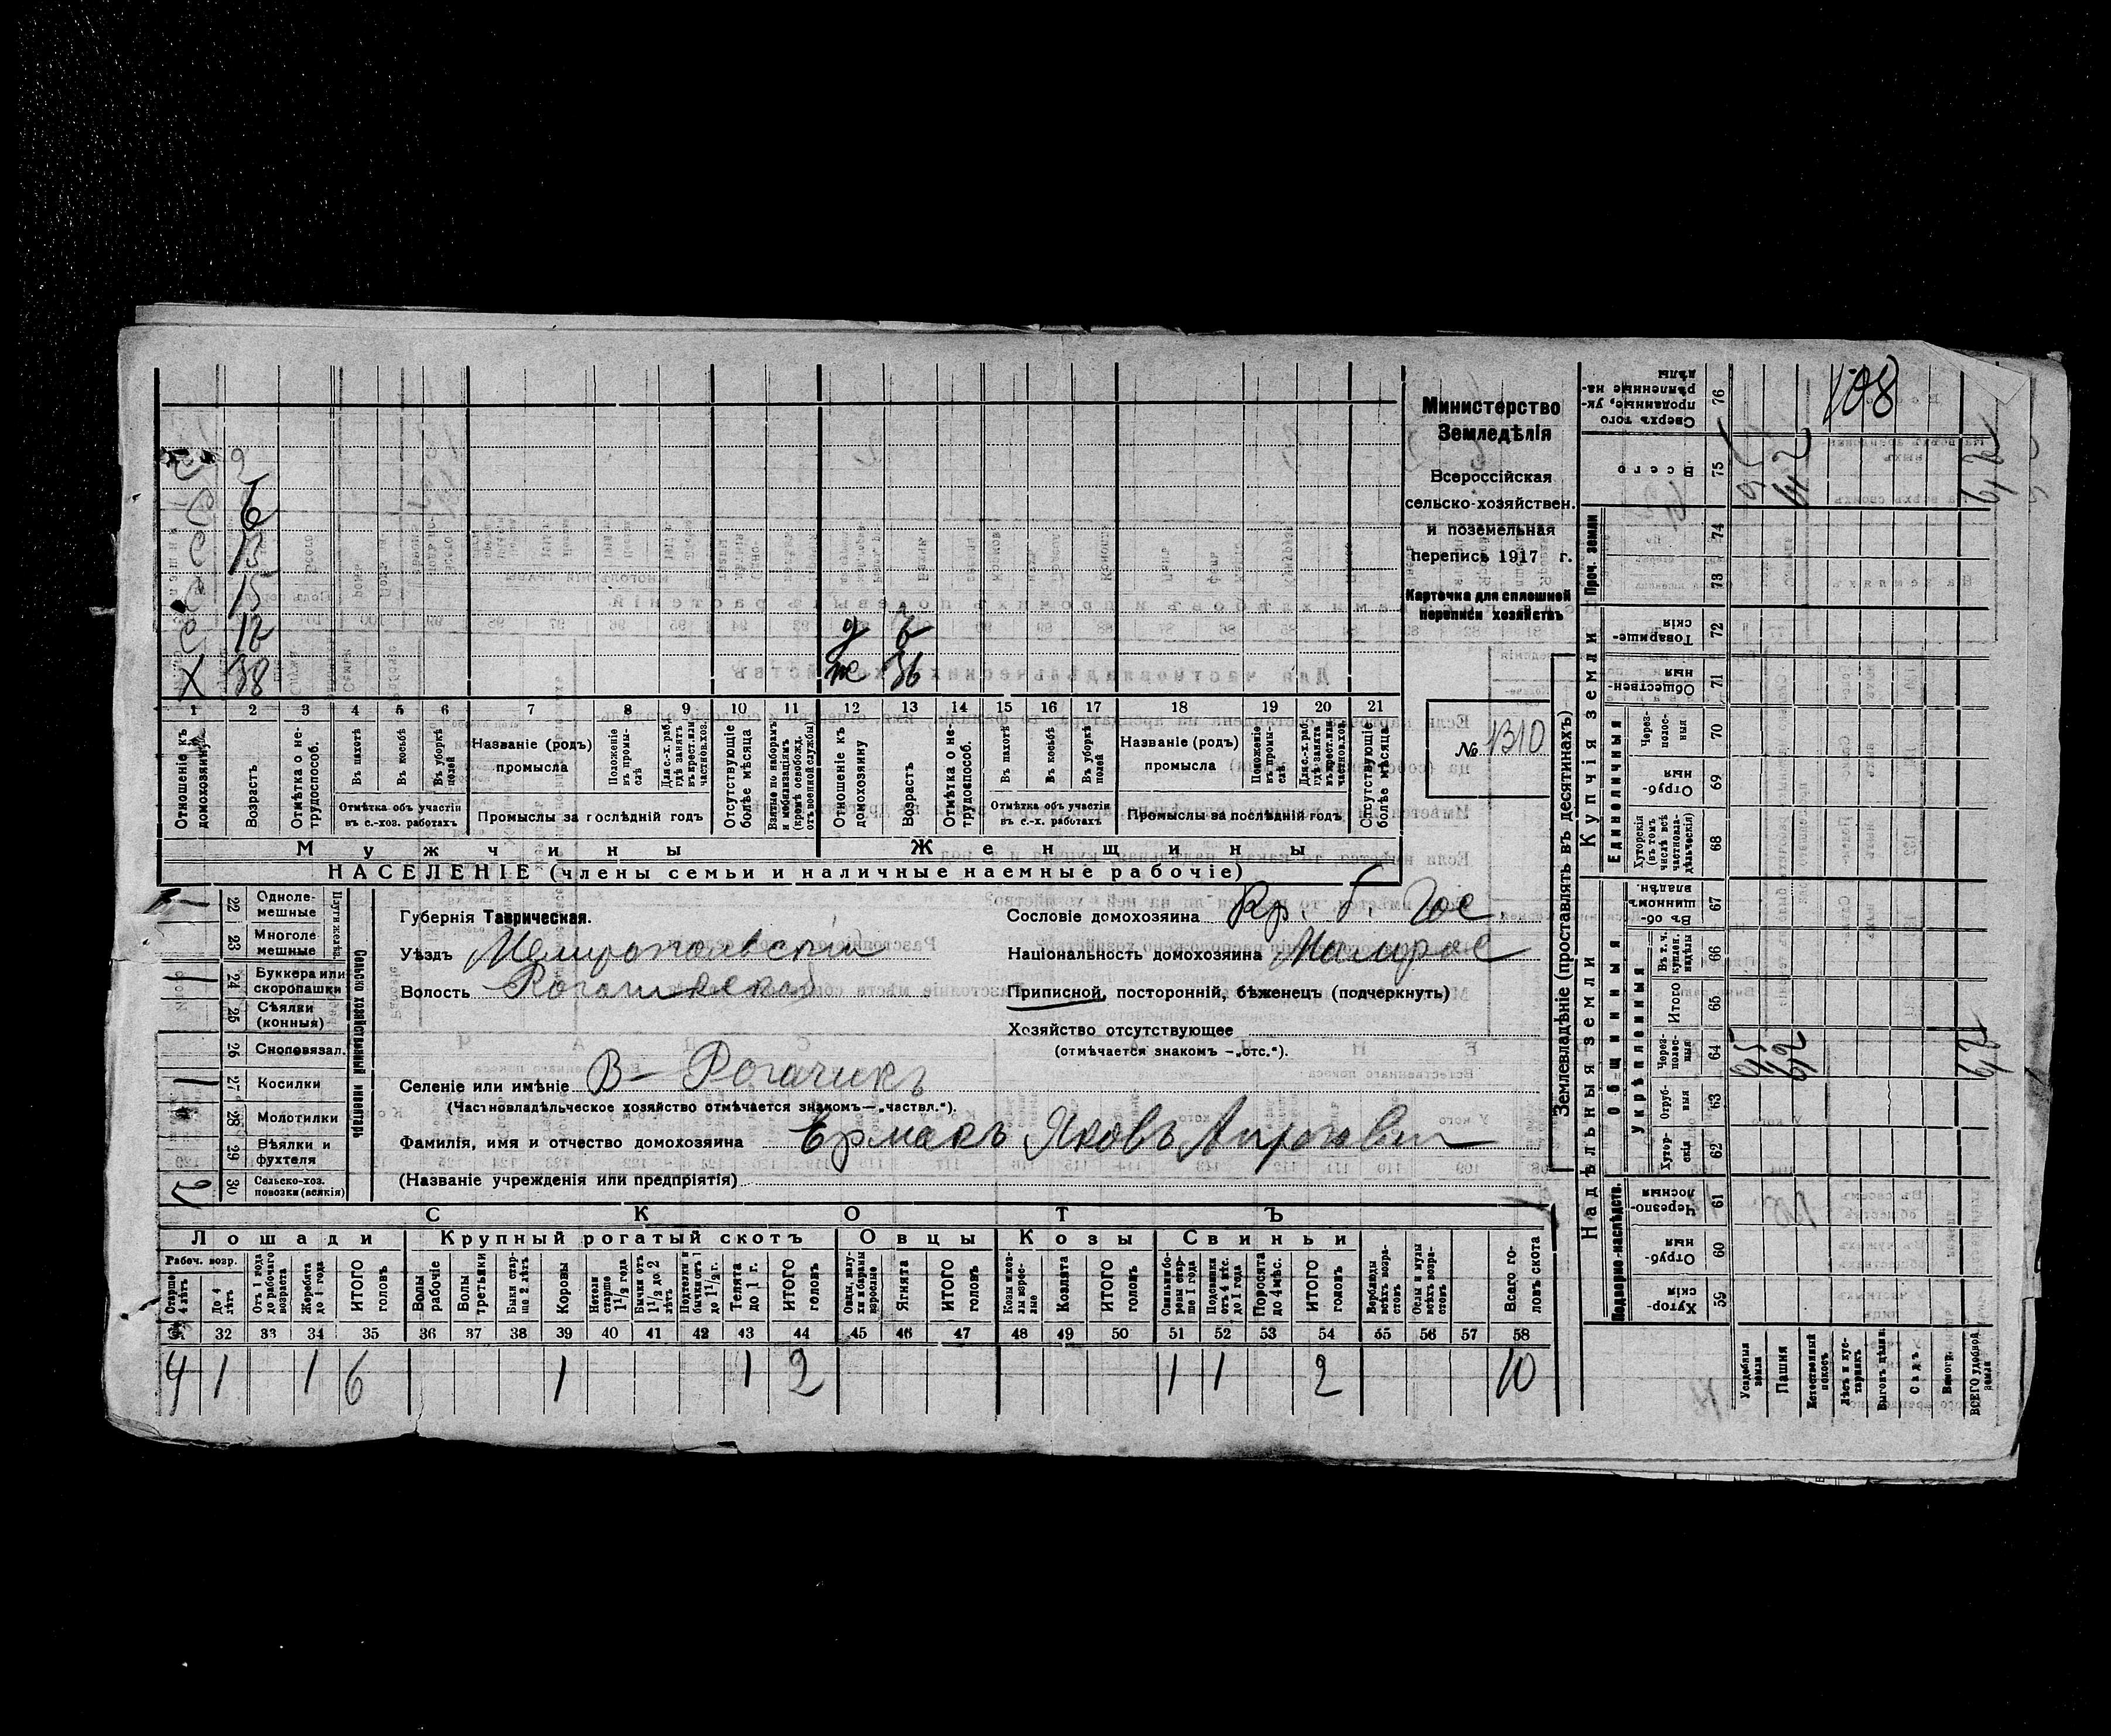 108
Министерство
Земледѣлія
Всероссійская
сельско-хозяйствен.
и поземельная
перепись 1917 г.
Карточка для сплошной
переписи хозяйствъ
№ 1310
6
С 13
С 15
С 12
Х 38
ж 36
1 2 3 4 5 6 7 8 9 10 11 12 13 14 15 16 17 18 19 20 21
Отношеніе къ домохозяину
Возрастъ
Отмѣтка о не-трудоспособ.
Въ пахотѣ
Въ косьбѣ
Въ уборкѣ полей
Отмѣтка объ участіи въ с.-хоз. работахъ
Названіе (родъ) промысла
Положеніе въ промы-слѣ
Для с.-х. раб. гдѣ занятъ въ крест. или частнов. хоз.
Промыслы за послѣдній годъ
Отсутствующіе болѣе мѣсяца
Взятые по наборамъ и мобилизаціямъ (кромѣ освобожд. отъ военной службы)
Отношеніе къ домохозяину
Возрастъ
Отмѣтка о не-трудоспособ.
Въ пахотѣ
Въ косьбѣ
Въ уборкѣ полей
Отмѣтка объ участіи въ с.-х. работахъ
Названіе (родъ) промысла
Положеніе въ промы-слѣ
Для с.-х. раб. гдѣ занята въ крест. или частнов. хоз.
Промыслы за послѣдній годъ
Отсутствующіе болѣе мѣсяца
Мужчины Женщины
НАСЕЛЕНІЕ (члены семьи и наличные наемные рабочіе)
Сельско хозяйственный инвентарь
Плуги желѣз.
22 Одноле-мешные
23 Многоле мешные
1 24 Буккера или скоропашки
25 Сѣялки (конныя)
26 Сноповязал.
1 27 Косилки
28 Молотилки
29 Вѣялки и фухтеля
2 30 Сельско-хоз. повозки (всякія)
Губернія Таврическая.
Уѣздъ Мелитопольскій
Волость Рогачикская
Сословіе домохозяина Кр.
Національность домохозяина Малорос
Приписной, посторонній, бѣженецъ (подчеркнуть)
Хозяйство отсутствующее
(отмѣчается знакомъ —„отс.“).
Селеніе или имѣніе В-Рогачикъ
(Частновладѣльческое хозяйство отмѣчается знакомъ—„частвл.“).
Фамилія, имя и отчество домохозяина Ермакъ Яковъ
(Названіе учрежденія или предпріятія)
СКОТЪ
Лошади Крупный рогатый скотъ Овцы Козы Свиньи
Рабоч. возр.
Старше 4 лѣтъ
До 4 лѣтъ
Отъ 1 года до рабочаго возраста
Жеребята до 1 года
ИТОГО головъ
Волы рабочіе
Волы третьяки
Быки стар-ше 2 лѣтъ
Коровы
Нетели старше 1 1/2 года
Бычки отъ 1 1/2 до 2 лѣтъ
Подтелки и бычки отъ 1 до 1 1/2 г.
Телята до 1 г.
ИТОГО головъ
Овцы, валу-хи и бараны взрослые
Ягнята
ИТОГО головъ
Козы и коз-лы взрос-лые
Козлята
ИТОГО головъ
Свиньи бо-ровы стар-ше 1 года
Подсвинки отъ 4 мѣс. до 1 года
Поросята до 4 мѣс.
ИТОГО головъ
Верблюды всѣхъ возра-стовъ
Ослы и мулы всѣхъ возра-стовъ
Всего го-ловъ скота
31 32 33 34 35 36 37 38 39 40 41 42 43 44 45 46 47 48 49 50 51 52 53 54 55 56 57 58
4 1 1 6 1 1 2 1 1 2 10
Землевладѣніе (проставлять въ десятинахъ)
Надѣльныя земли
Купчія земли
Проч. земли
Подворно-наслѣдств.
Общинныя
Укрѣпленныя
Единоличныя
Хутор-скія 59
Отруб-ныя 60
Черезпо-лосныя 61
Хутор-скія 62
Отруб-ныя 63
Через-полос-ныя 64
Итого 65
Въ т. ч. куплен. надѣлы 66
Въ об-щинномъ владѣн. 67
Хуторскія (въ томъ числѣ всѣ частновла-дѣльческія) 68
Отруб-ныя 69
Через-полос-ныя 70
Обществен-ныя 71
Товарище-скія 72
73
74
Всего 75
Сверхъ того проданные, ук-рѣпленные на-дѣлы 76
Усадебныя земли
Пашня
Естественный покосъ
Лѣсъ и кус-тарникъ
Выгонъ цѣлин.
Садъ
Виногр.
ВСЕГО удобной земли